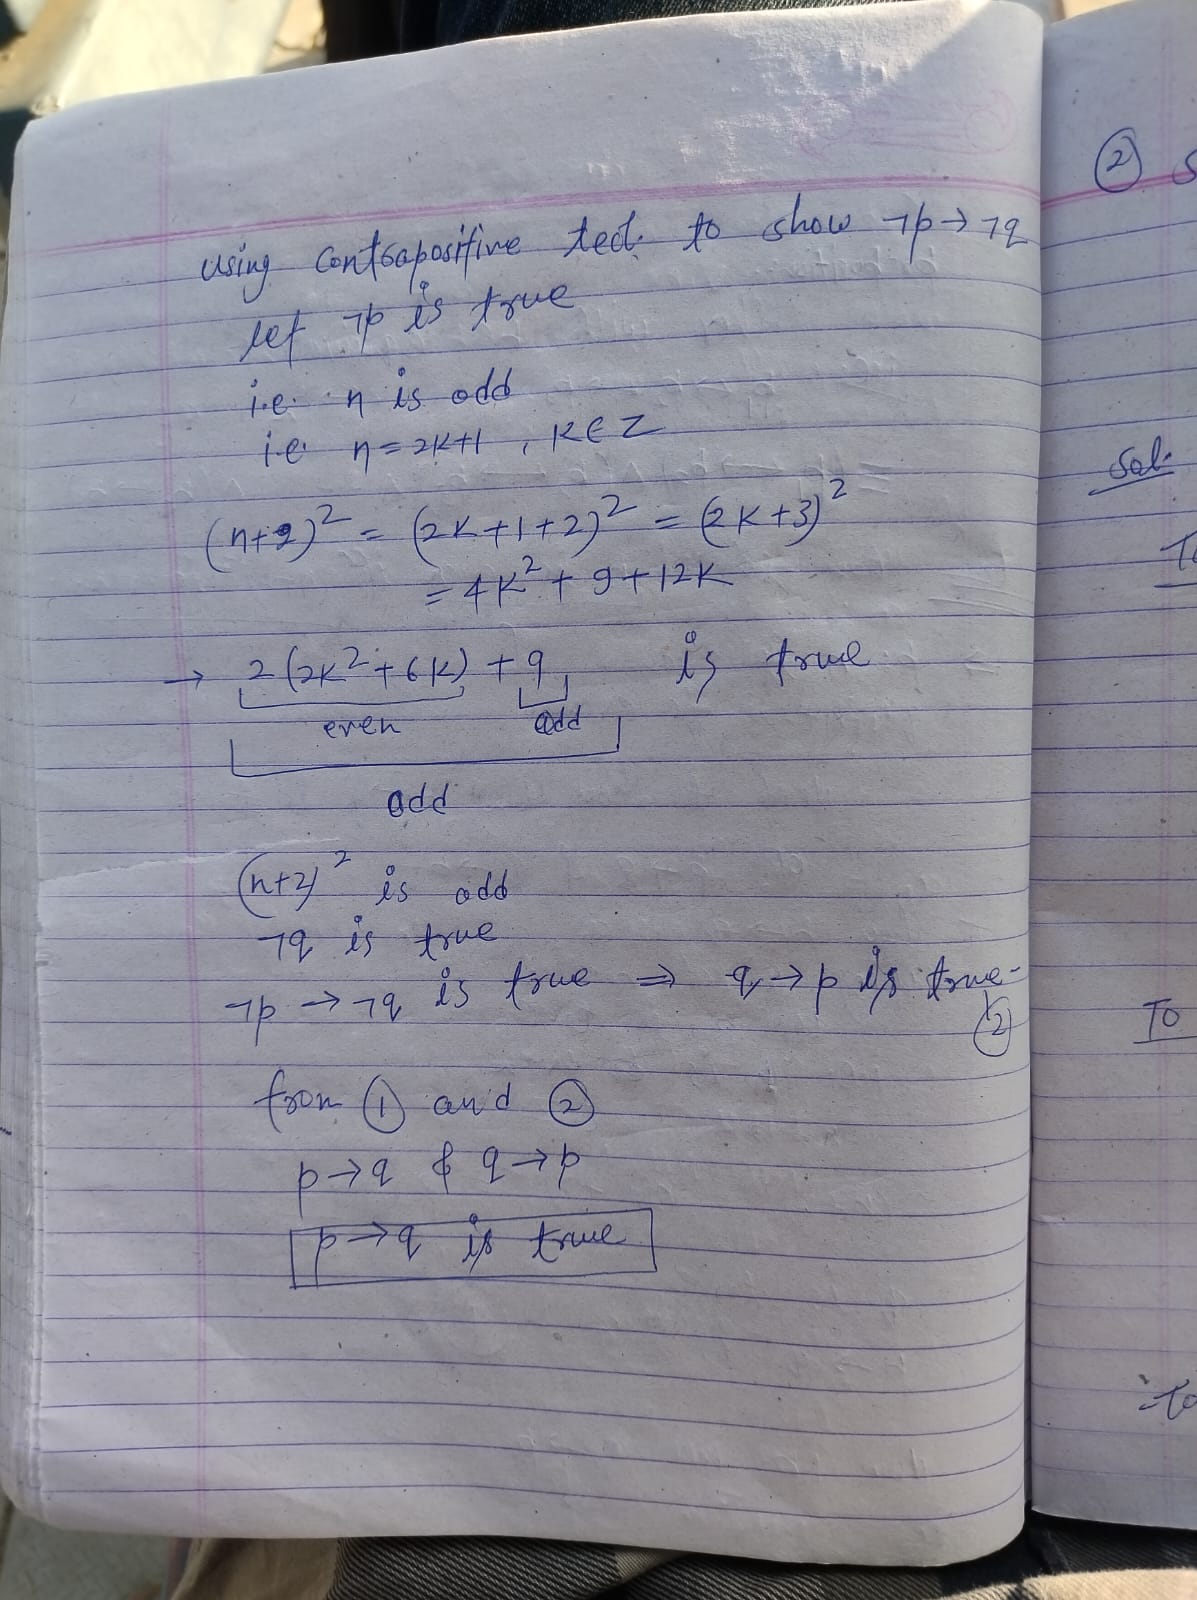 using contrapositive tect. to show ¬p→¬q
let ¬p is true
i.e. n is odd
i.e. n=2k+1 , k∈Z
(n+2)² = (2k+1+2)² = (2k+3)²
= 4k² + 9 + 12k
→ 2(2k²+6k) + 9 is true
even odd
odd
(n+2)² is odd
¬q is true
¬p → ¬q is true ⇒ q→p is true-
②
from ① and ②
p→q & q→p
p→q is true
② S
Sol.
To
To